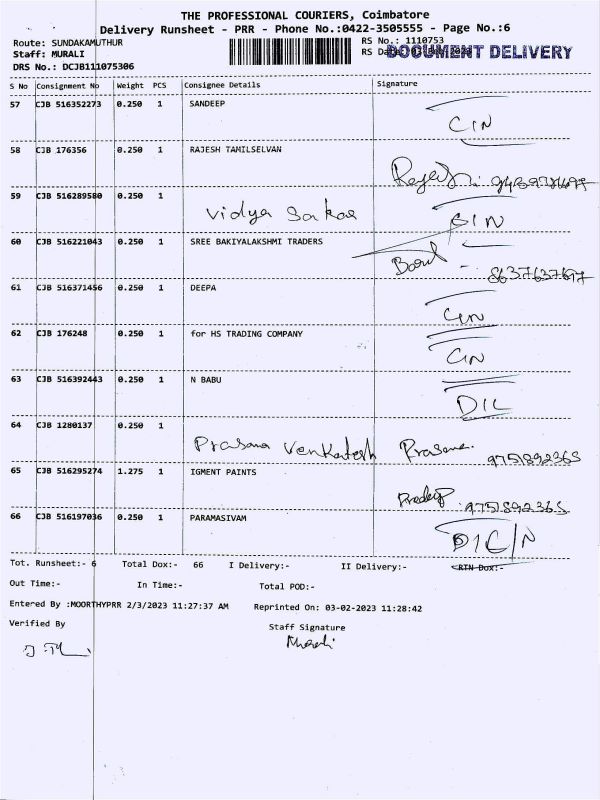 THE PROFESSIONAL COURIERS, Coimbatore
Delivery Runsheet - PRR - Phone No.:0422-3505555 - Page No.:6
Route: SUNDAKAMUTHUR
RS No.: 1110753
Staff: MURALI
RS Da
DOCUMENT DELIVERY
DRS No.: DCJB111075306
S No Consignment No Weight PCS Consignee Details Signature
57 CJB 516352273 0.250 1 SANDEEP
CIN
58 CJB 176356 0.250 1 RAJESH TAMILSELVAN
59 CJB 516289580 0.250 1
Vidya
CIN
60 CJB 516221043 0.250 1 SREE BAKIYALAKSHMI TRADERS
8637637697
61 CJB 516371456 0.250 1 DEEPA
CIN
62 CJB 176248 0.250 1 for HS TRADING COMPANY
CIN
63 CJB 516392443 0.250 1 N BABU
DIL
64 CJB 1280137 0.250 1
Prasana Venkatesh Prasana 9751892365
65 CJB 516295274 1.275 1 IGMENT PAINTS
Pradeep 9751892365
66 CJB 516197036 0.250 1 PARAMASIVAM
DIC/N
Tot. Runsheet:- 6 Total Dox:- 66 I Delivery:- II Delivery:- RTN Dox:-
Out Time:- In Time:- Total POD:-
Entered By :MOORTHYPRR 2/3/2023 11:27:37 AM Reprinted On: 03-02-2023 11:28:42
Verified By Staff Signature
Murali